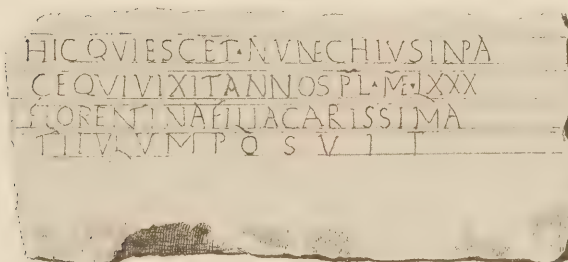 HICQVIESCET·NVNECHIVSINPA
CEQVIVIXITANNOSPL·ME·LXXX
FLORENTINAFILIACARISSIMA
TITVLVMPOSVIT